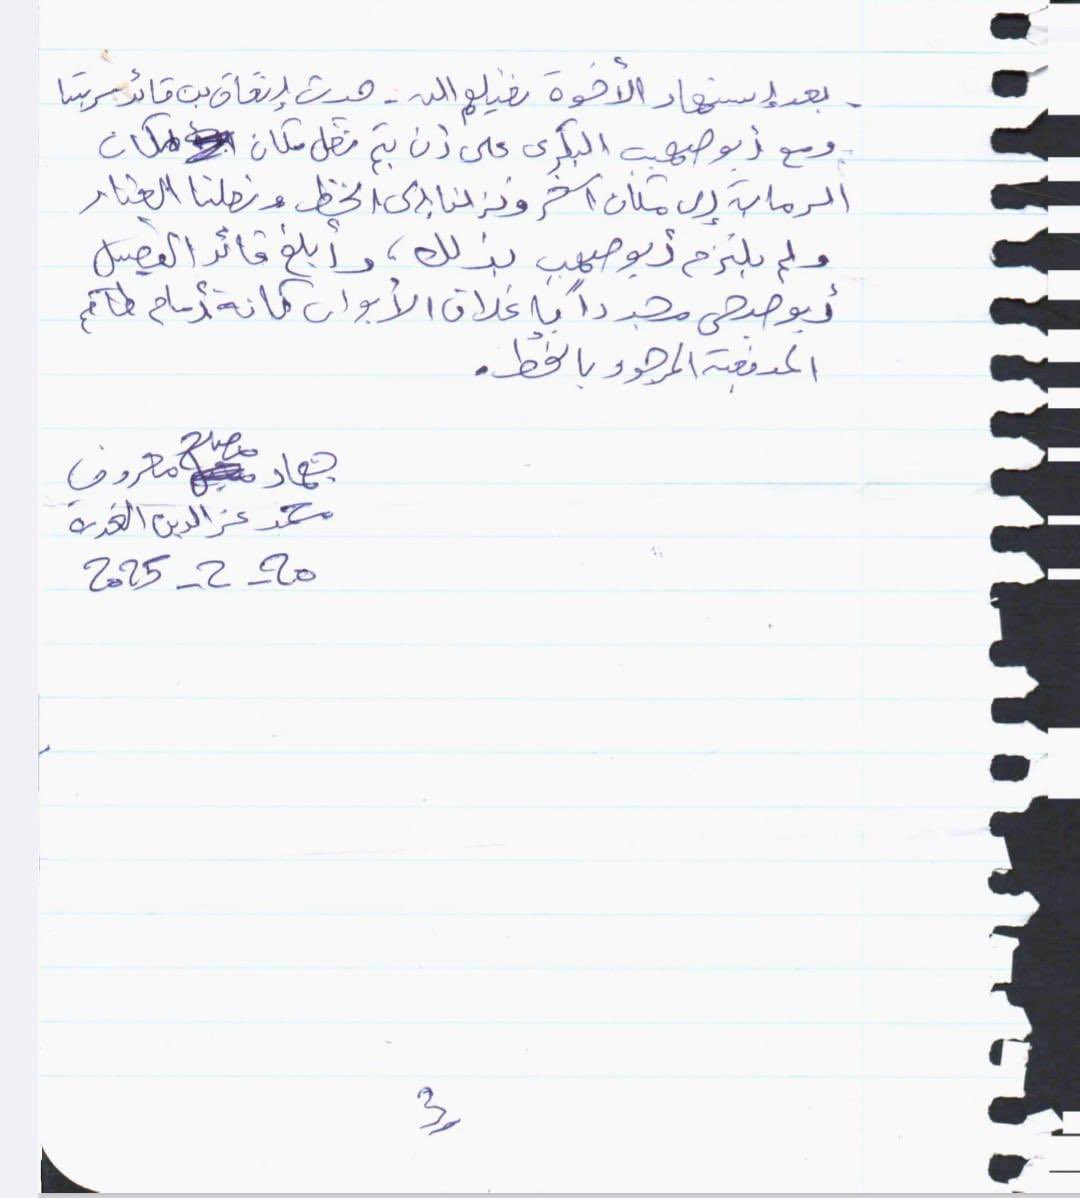 - بعد إستشهاد الأخوة تقبلهم الله - حدث إتفاق بين قائد سريتنا
ومع أبو صهيب البكري على أن يتم نقل مكان مكان
الرماية إلى مكان آخر ونزلنا إلى الخط ونقلنا العتاد
ولم يلتزم أبو صهيب بذلك، وأبلغ قائد الفصيل
أبو صبحي مجدداً بإغلاق الأبواب كافة أمام طاقم
المدفعية الموجود بالخط.
جهاد مصباح معروف
محمد عز الدين
20 - 2 - 2025
3